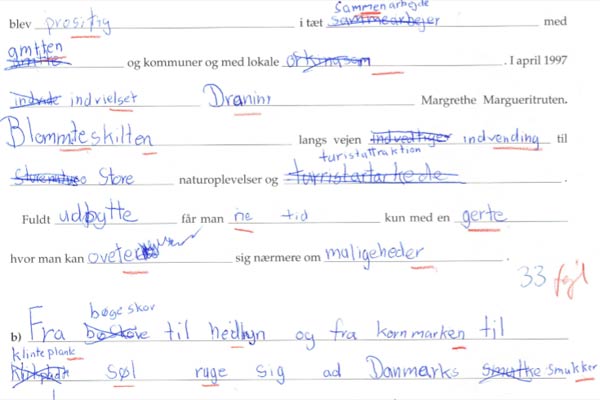 sammenarbejde
blev prositiy i tæt sammearbejer med
amtten
amtte og kommuner og med lokale . I april 1997
indvielset Dranins Margrethe Margueritruten.
Blommteskilten langs vejen indvending til
turistattraktion
Store naturoplevelser og turristartarkede .
Fuldt udbytte får man ne tid kun med en gerte
hvor man kan oveter sig nærmere om maligeheder .
33 fejl
bøgeskov
b) Fra til hedbyn og fra kornmarken til
klinteplank
Søl ruge sig ad Danmarks smukker